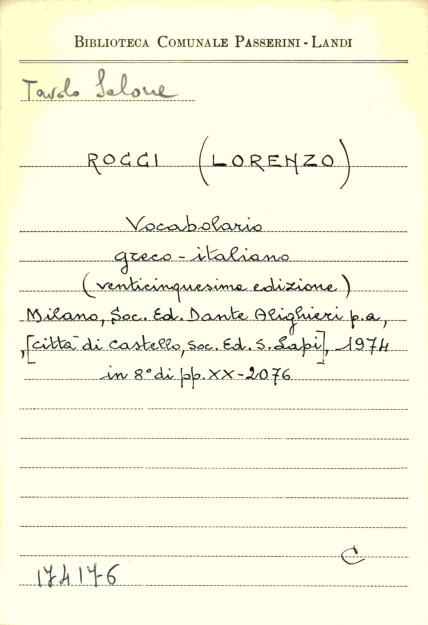 BIBLIOTECA COMUNALE PASSERINI - LANDI
Tavolo Salone
ROCCI (LORENZO)
Vocabolario
greco - italiano
(venticinquesima edizione)
Milano, Soc. Ed. Dante Alighieri p.a,
,[città di Castello, Soc. Ed. S. Lapi], 1974
in 8° di pp. XX - 2076
C
174176